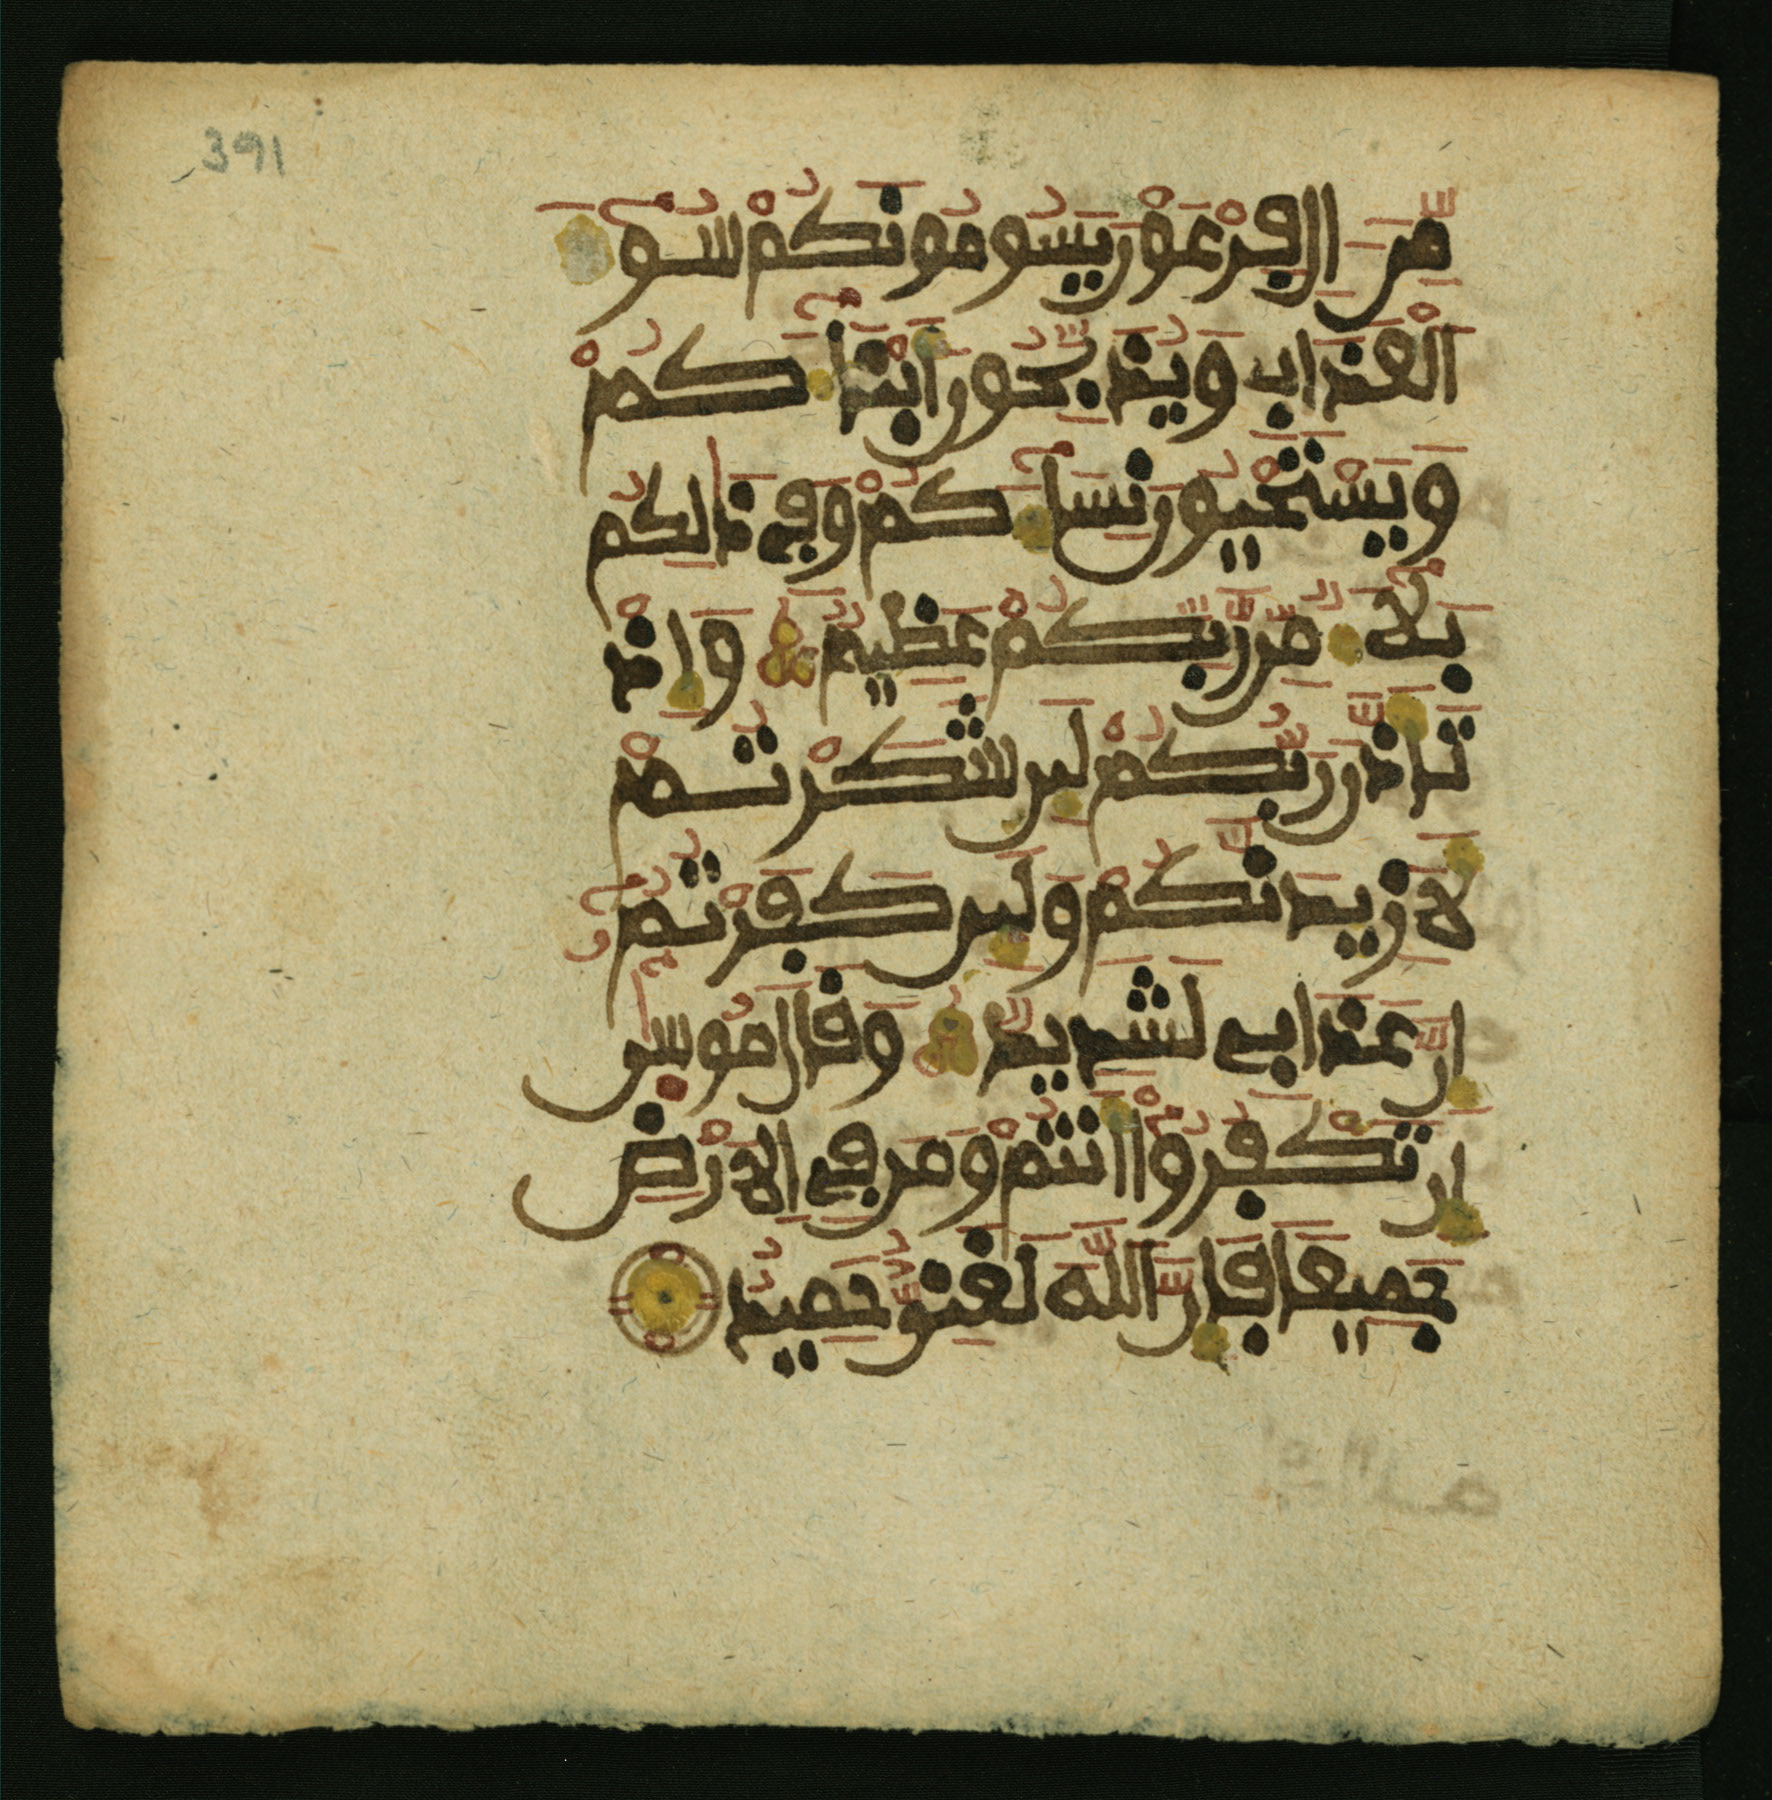 391
مِّنَ الِ فِرْعَوْنَ يَسُومُونَكُمْ سُوٓءَ
الْعَذَابِ وَيُذَبِّحُونَ أَبْنَآءَكُمْ
وَيَسْتَحْيُونَ نِسَآءَكُمْ وَفِي ذَالِكُم
بَلَآءٌ مِّن رَّبِّكُمْ عَظِيمٌ وَإِذْ
تَأَذَّنَ رَبُّكُمْ لَئِن شَكَرْتُمْ
لَأَزِيدَنَّكُمْ وَلَئِن كَفَرْتُمُۥٓ
إِنَّ عَذَابِي لَشَدِيدٌ وَقَالَ مُوسىٰٓ
إِن تَكْفُرُوٓا أَنتُمْ وَمَن فِي الَارْضِ
جَمِيعًا فَإِنَّ اللَّهَ لَغَنِيٌّ حَمِيدٌ